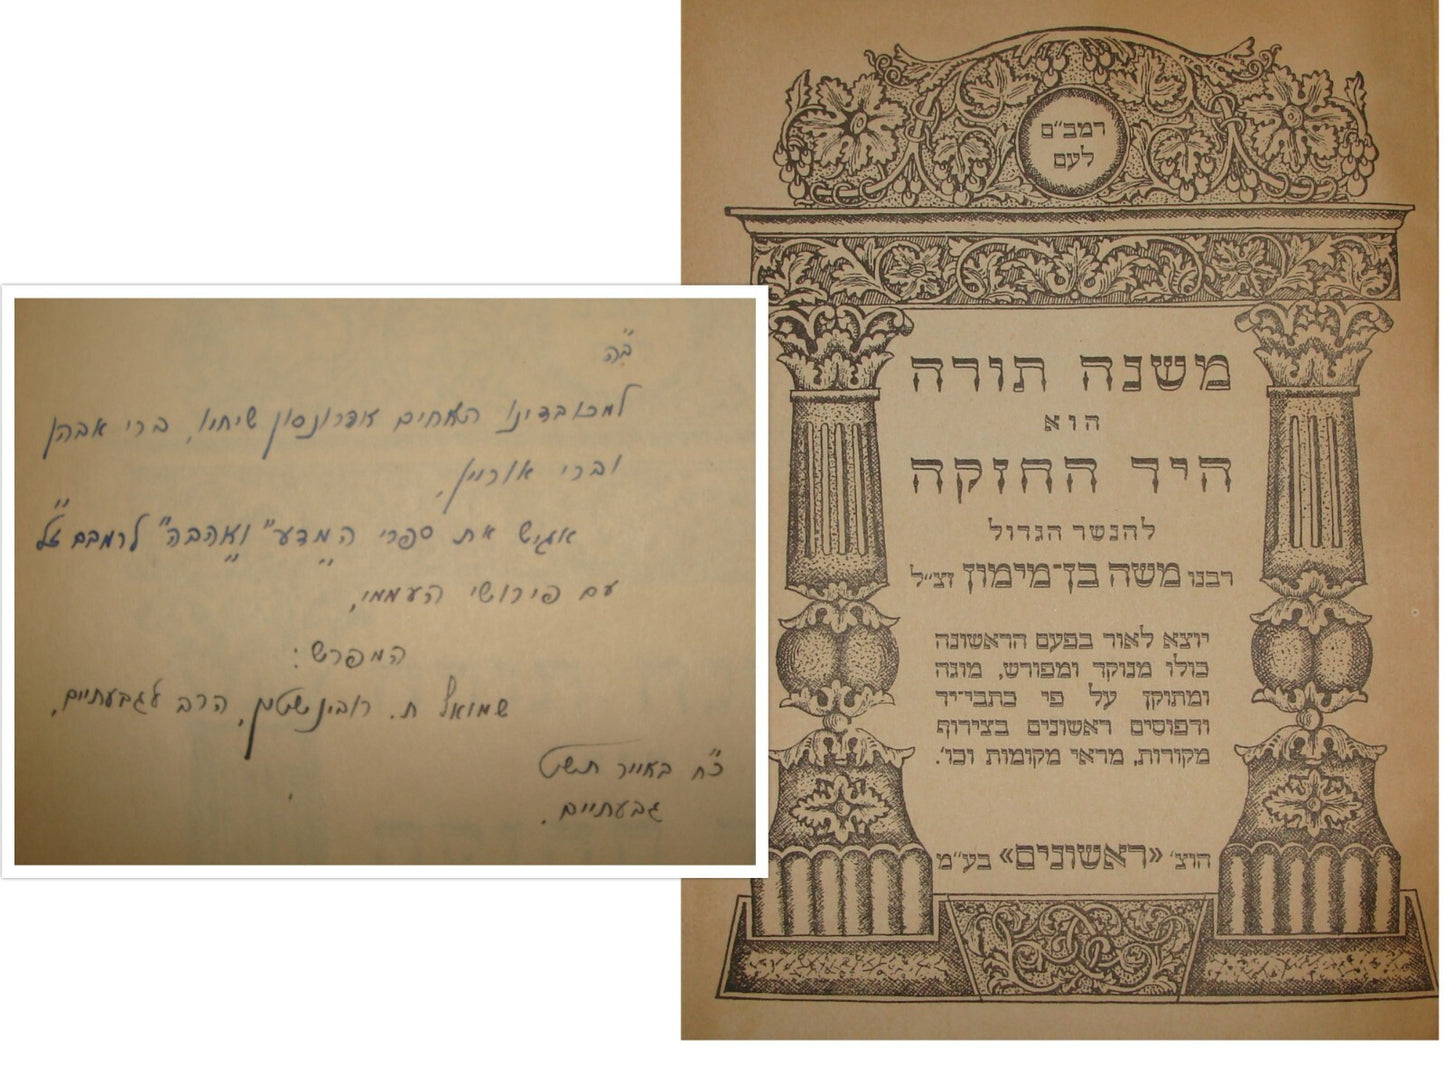 ב"ה
למכובדינו האחים אהרונסון שיחיו, ברי אבהן
וברי אוריין,
אגיש את ספרי המדע" ואהבה" לרמבם ז"ל
עם פירושי העממי,
המפרש:
שמואל ת. רובינשטין, הרב לגבעתיים,
כ"ח באייר תשט
גבעתיים.
רמב״ם
לעם
משנה תורה
הוא
היד החזקה
להנשר הגדול
רבנו משה בן־מימון זצ״ל
יוצא לאור בפעם הראשונה
כולו מנוקד ומפורש, מוגה
ומתוקן על פי כתבי־יד
ודפוסים ראשונים בצירוף
מקורות, מראי מקומות וכו׳.
הוצ׳ «ראשונים» בע״מ